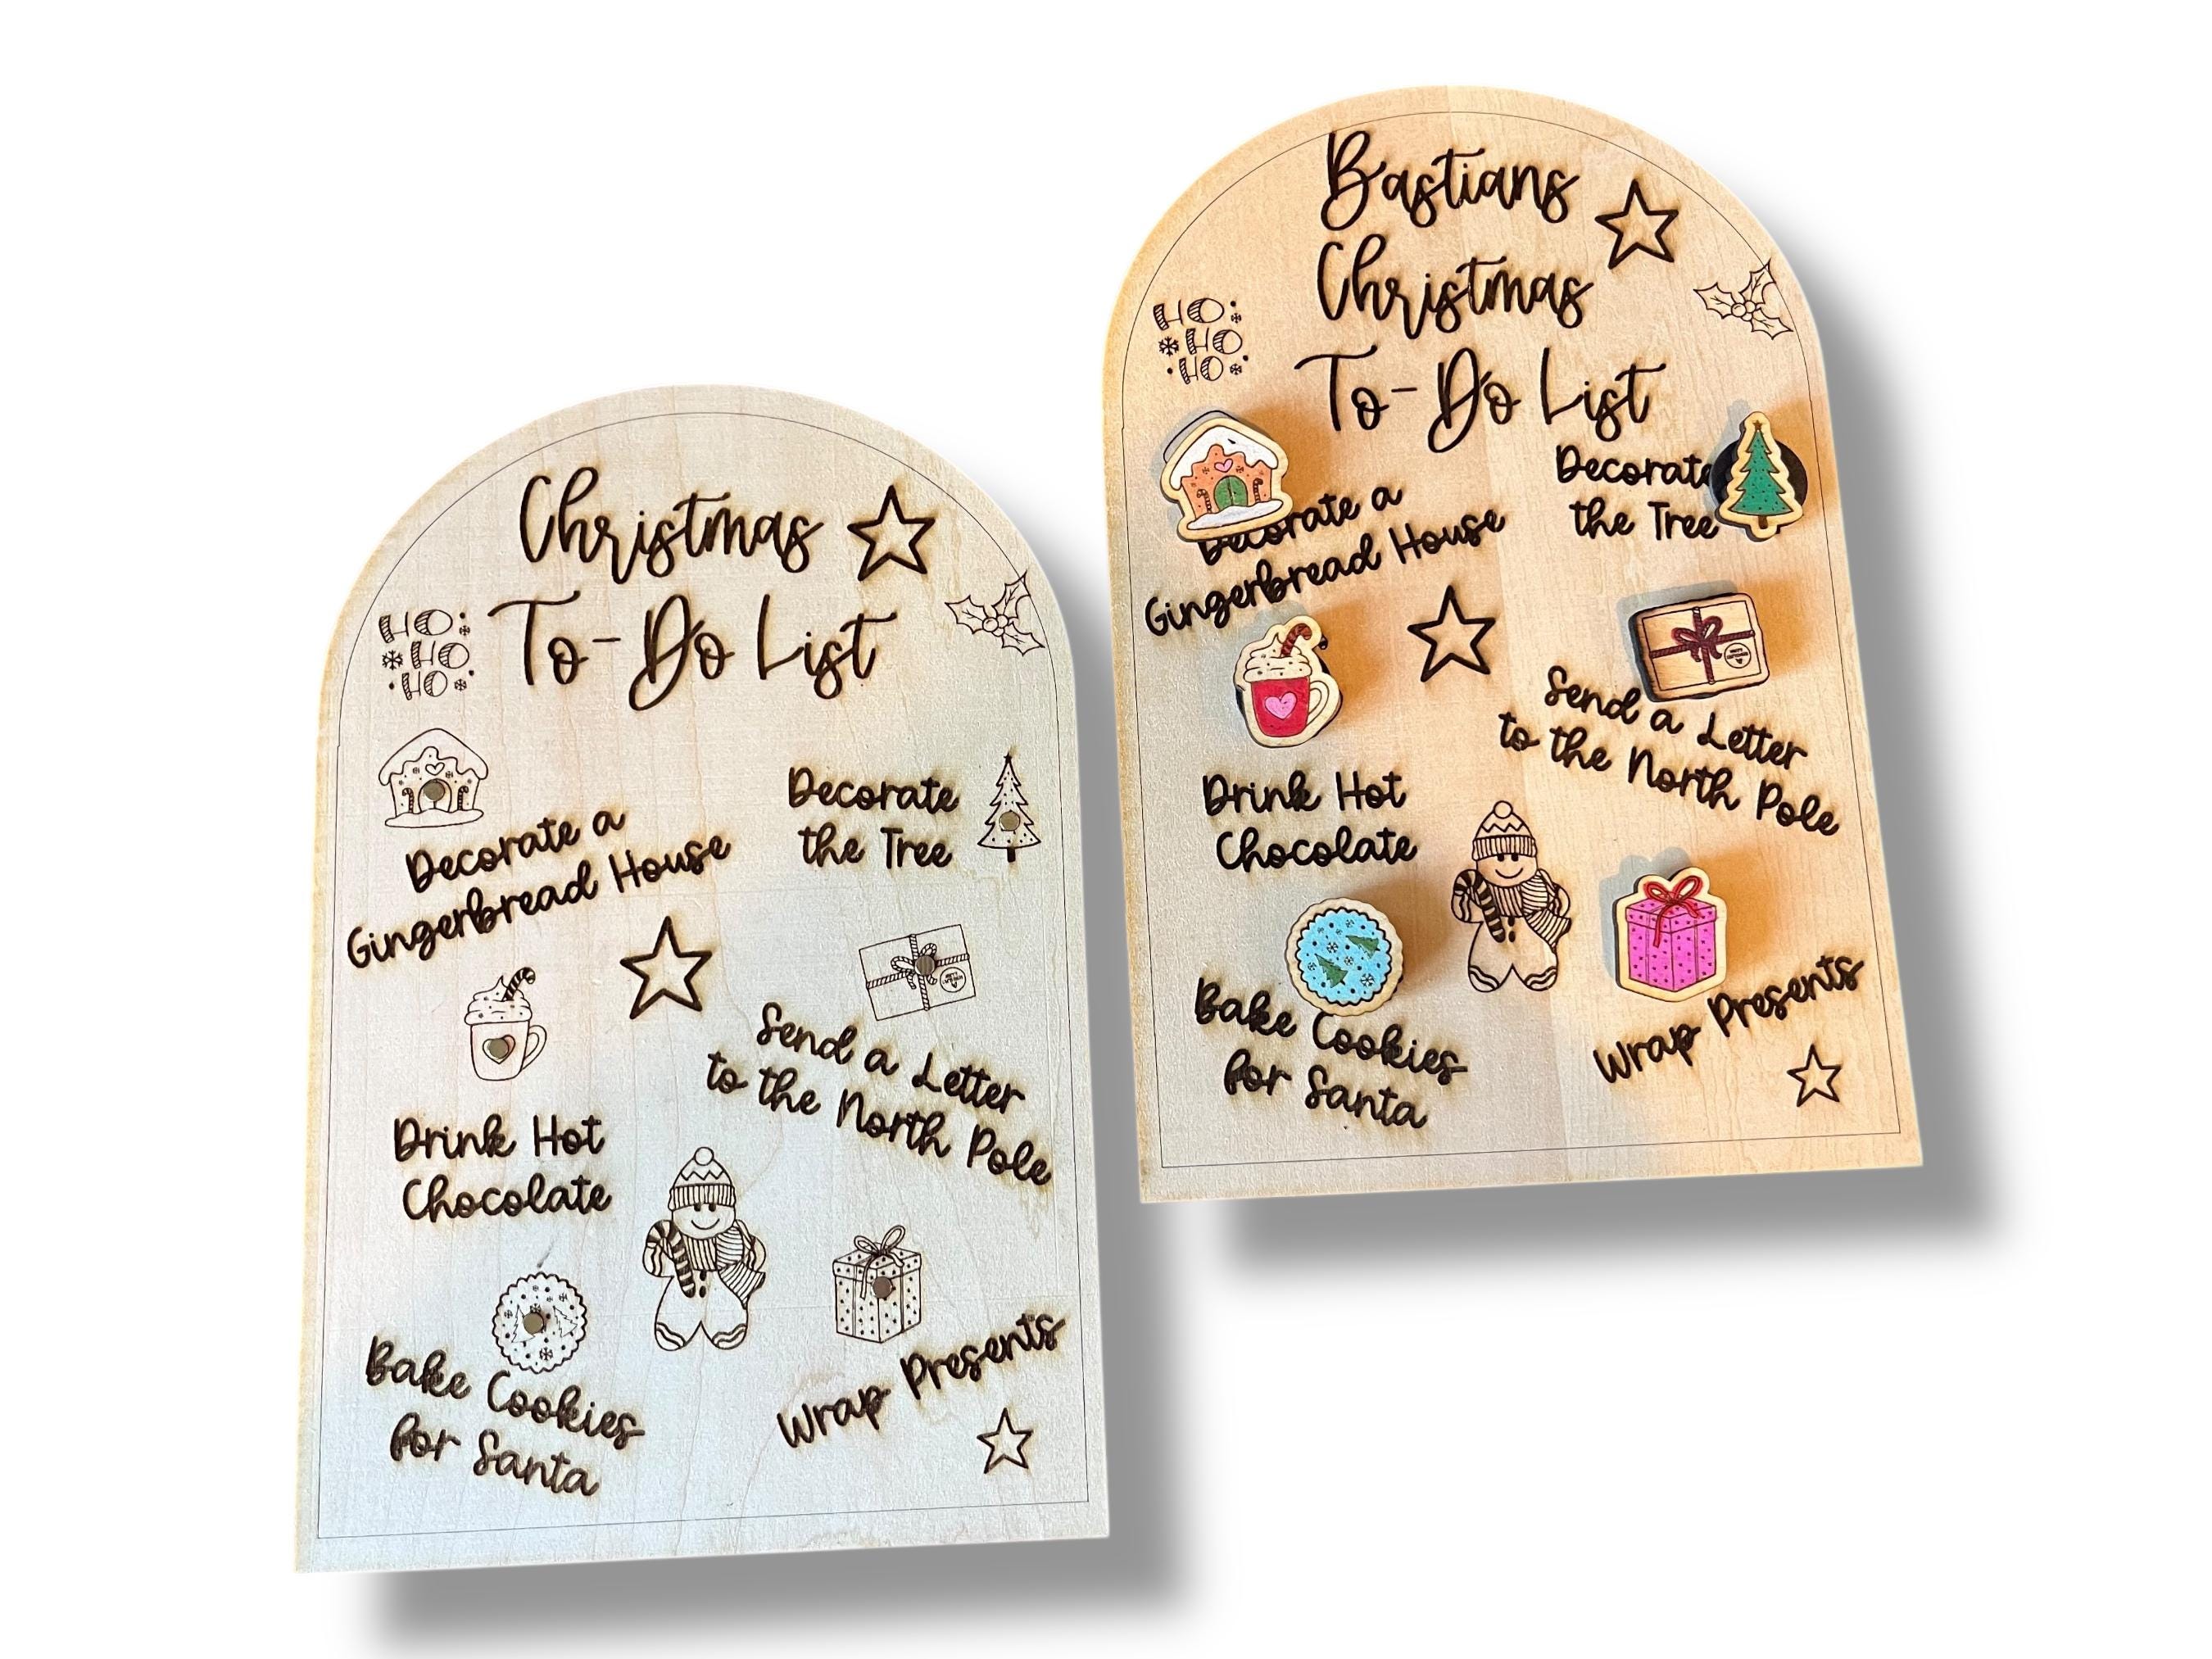 Christmas
To-Do List
HO
HO
HO
Decorate a
Gingerbread House
Decorate
the Tree
Drink Hot
Chocolate
Send a Letter
to the North Pole
Bake Cookies
for Santa
Wrap Presents
Bastians
Christmas
To-Do List
HO
HO
HO
Decorate a
Gingerbread House
Decorate
the Tree
Drink Hot
Chocolate
Send a Letter
to the North Pole
Bake Cookies
for Santa
Wrap Presents